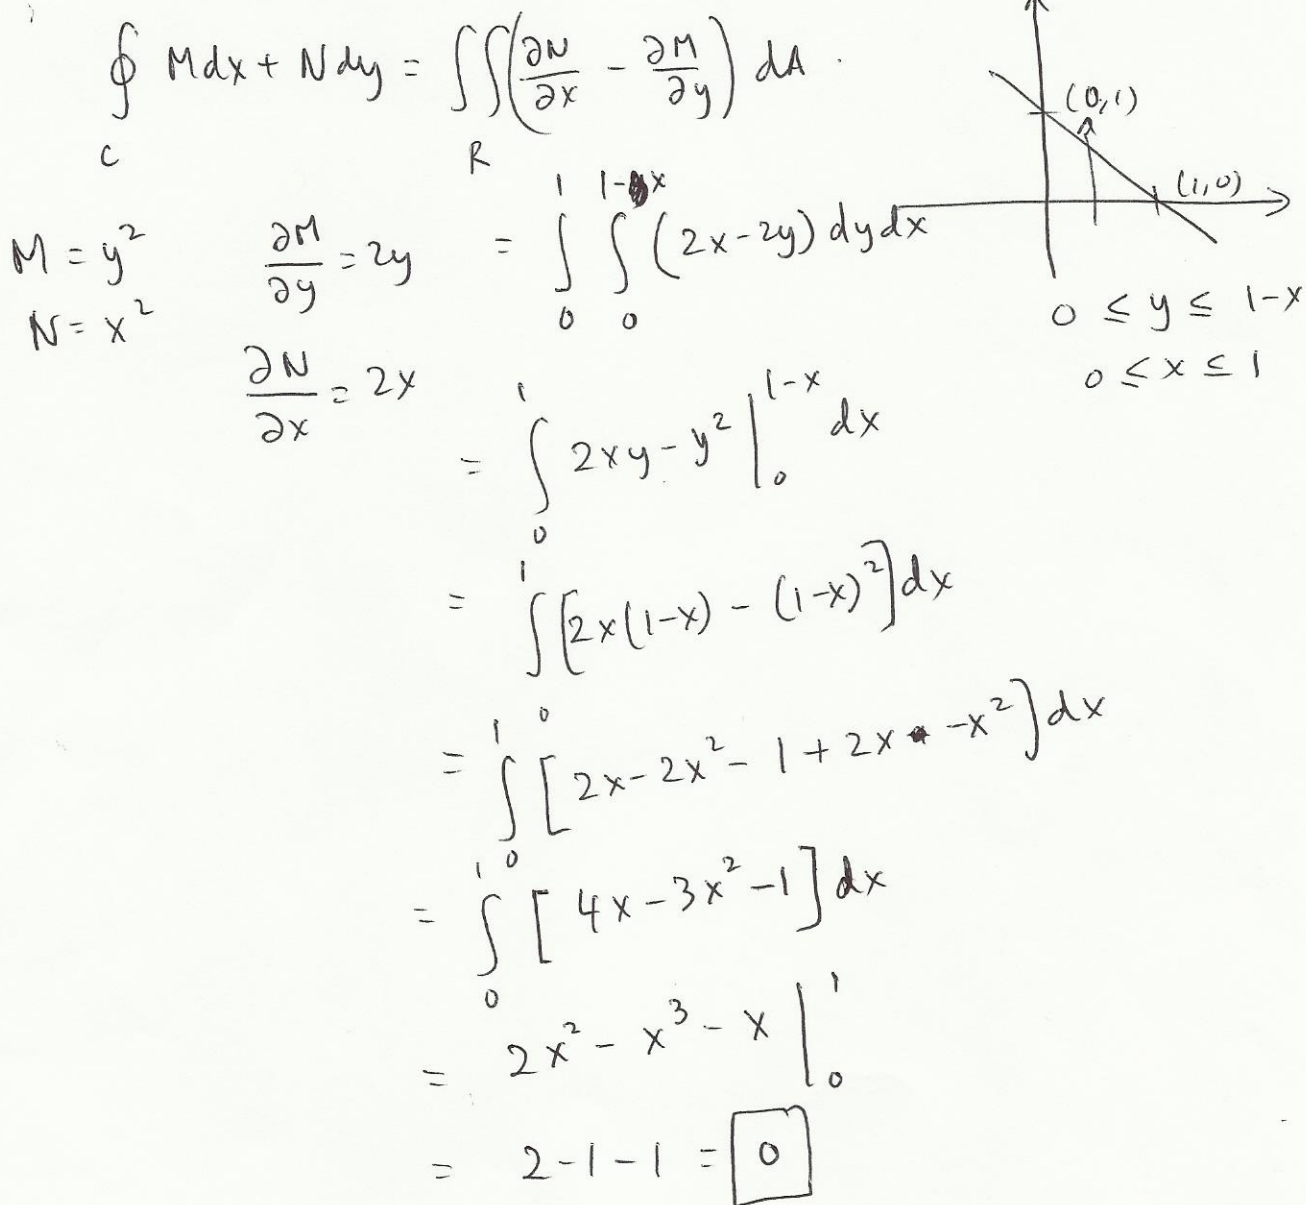 ∮_C Mdx + Ndy = ∫∫_R (∂N/∂x - ∂M/∂y) dA.
(0,1)
(1,0)
M = y² ∂M/∂y = 2y = ∫_0^1 ∫_0^{1-x} (2x-2y) dy dx
N = x²
0 ≤ y ≤ 1-x
∂N/∂x = 2x
0 ≤ x ≤ 1
= ∫_0^1 2xy - y² |_0^{1-x} dx
= ∫_0^1 [2x(1-x) - (1-x)²] dx
= ∫_0^1 [2x - 2x² - 1 + 2x - x²] dx
= ∫_0^1 [4x - 3x² - 1] dx
= 2x² - x³ - x |_0^1
= 2-1-1 = 0